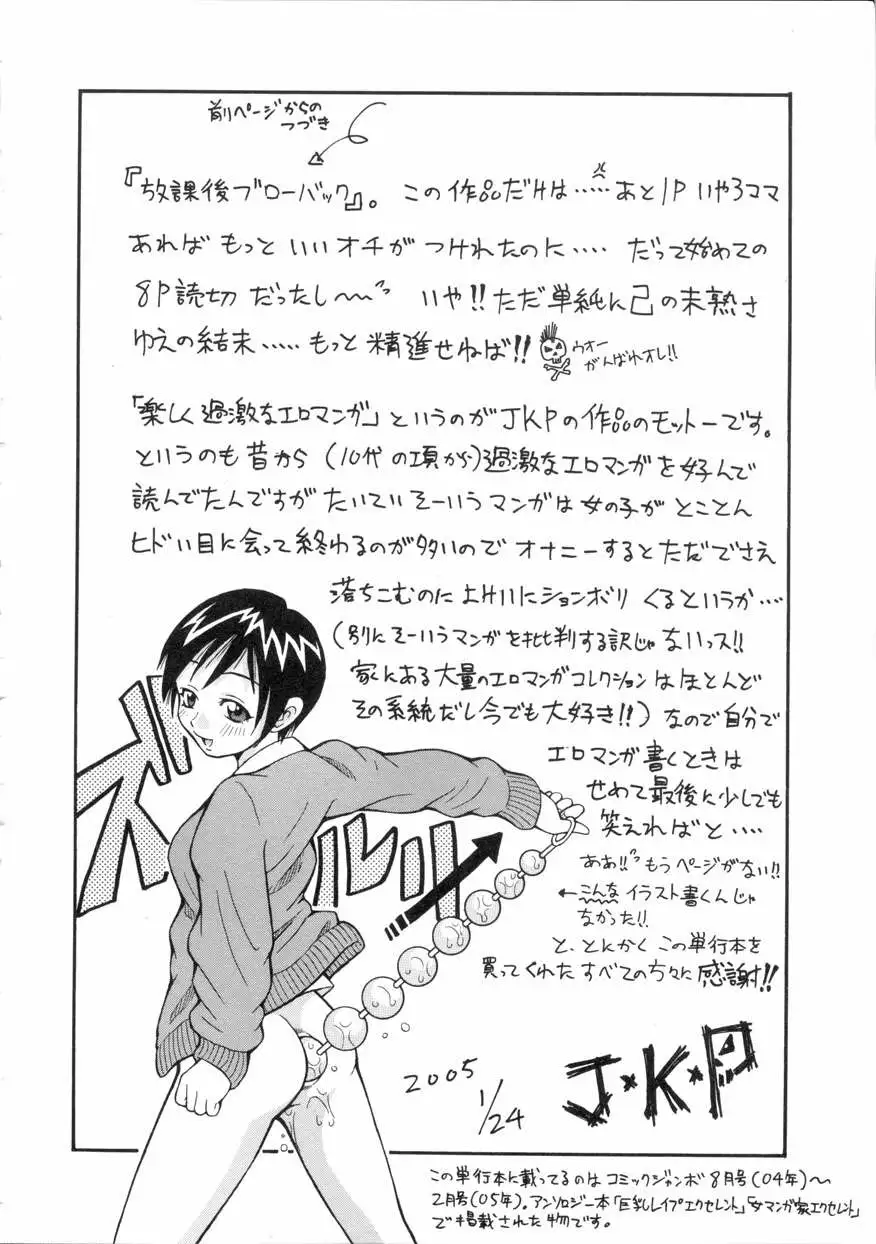 前ページからの
つづき
『放課後ブローバック』。この作品だけは……あと1P いや3コマ
あればもっといいオチがつけれたのに…… だって始めての
8P読切だったし〜〜 いや!!ただ単純に己の未熟さ
ゆえの結末…… もっと精進せねば!!
ウオー
がんばれオレ!!
「楽しく過激なエロマンガ」というのがJKPの作品のモットーです。
というのも昔から(10代の項から)過激なエロマンガを好んで
読んでたんですがたいていそーいうマンガは女の子がとことん
ヒドい目に会って終わるのが多いのでオナニーするとただでさえ
落ちこむのによけいにションボリくるというか…
(別にそーいうマンガを批判する訳じゃないっス!!
家にある大量のエロマンガコレクションはほとんど
その系統だし今でも大好き!!)なので自分で
エロマンガ書くときは
せめて最後に少しでも
笑えればと….
ああ!! もうページがない!!
←こんなイラスト書くんじゃ
なかった!!
と、とにかくこの単行本を
買ってくれたすべての方々に感謝!!
ズルルリ
2005
1/24
J・K・P
この単行本に載ってるのはコミックジャンボ8月号(04年)〜
2月号(05年)。アンソロジー本「巨乳レイプエクセレント」「女マンガ家エクセレント」
で掲載された物です。